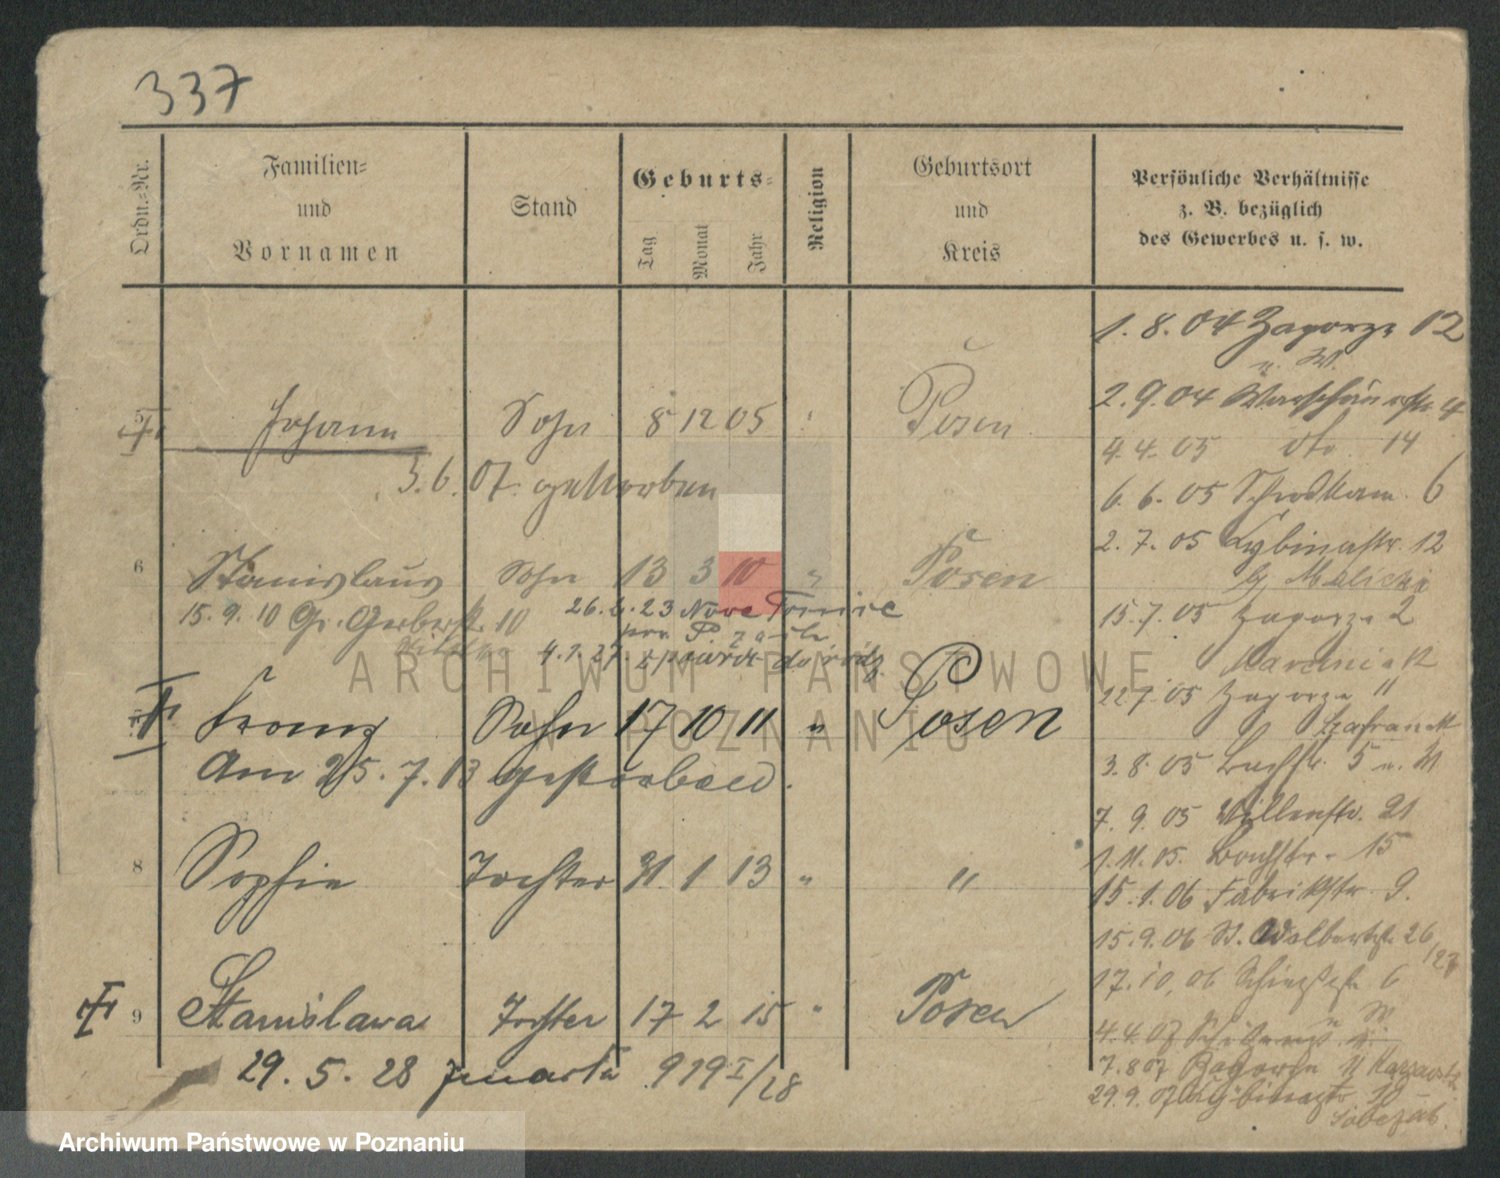 337
Ordn.-Nr.
Familien-
und
Vornamen
Stand
Geburts-
Tag
Monat
Jahr
Religion
Geburtsort
und
Kreis
Persönliche Verhältnisse
z. B. bezüglich
des Gewerbes u. s. w.
5 Johann Sohn 8 12 05 " Posen
3.6.07 gestorben
6 Stanislaus Sohn 13 3 10 " Posen
15.9.10 Gr. Gerberstr. 10
26.6.23 Nowe
4.1.27
Franz Sohn 17 10 11 " Posen
Am 25.7.13 gestorben.
8 Sophie Tochter 31 1 13 " "
9 Stanislawa Tochter 17 2 15 " Posen
29.5.28 zmarła 919 I/28
1.8.04 Zagorze 12
2.9.04 4
4.4.05 dto 14
6.6.05 Schrodkam. 6
2.7.05 Cybinastr. 12
b/ Malicki
15.7.05 Zagorze 2
22.7.05 Zagorze "
Szafranek
3.8.05 Bachstr. 5
7.9.05 21
1.11.05. Bachstr. 15
15.1.06 Fabrikstr. 9.
15.9.06 St. Adalbertstr. 26/27
17.10.06 6
4.4.07
7.8.07 Zagorze 11
29.9.07 Cybinastr. 10
ARCHIWUM PAŃSTWOWE
W POZNANIU
Archiwum Państwowe w Poznaniu